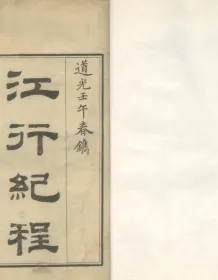 道光壬午春鐫
江行紀程